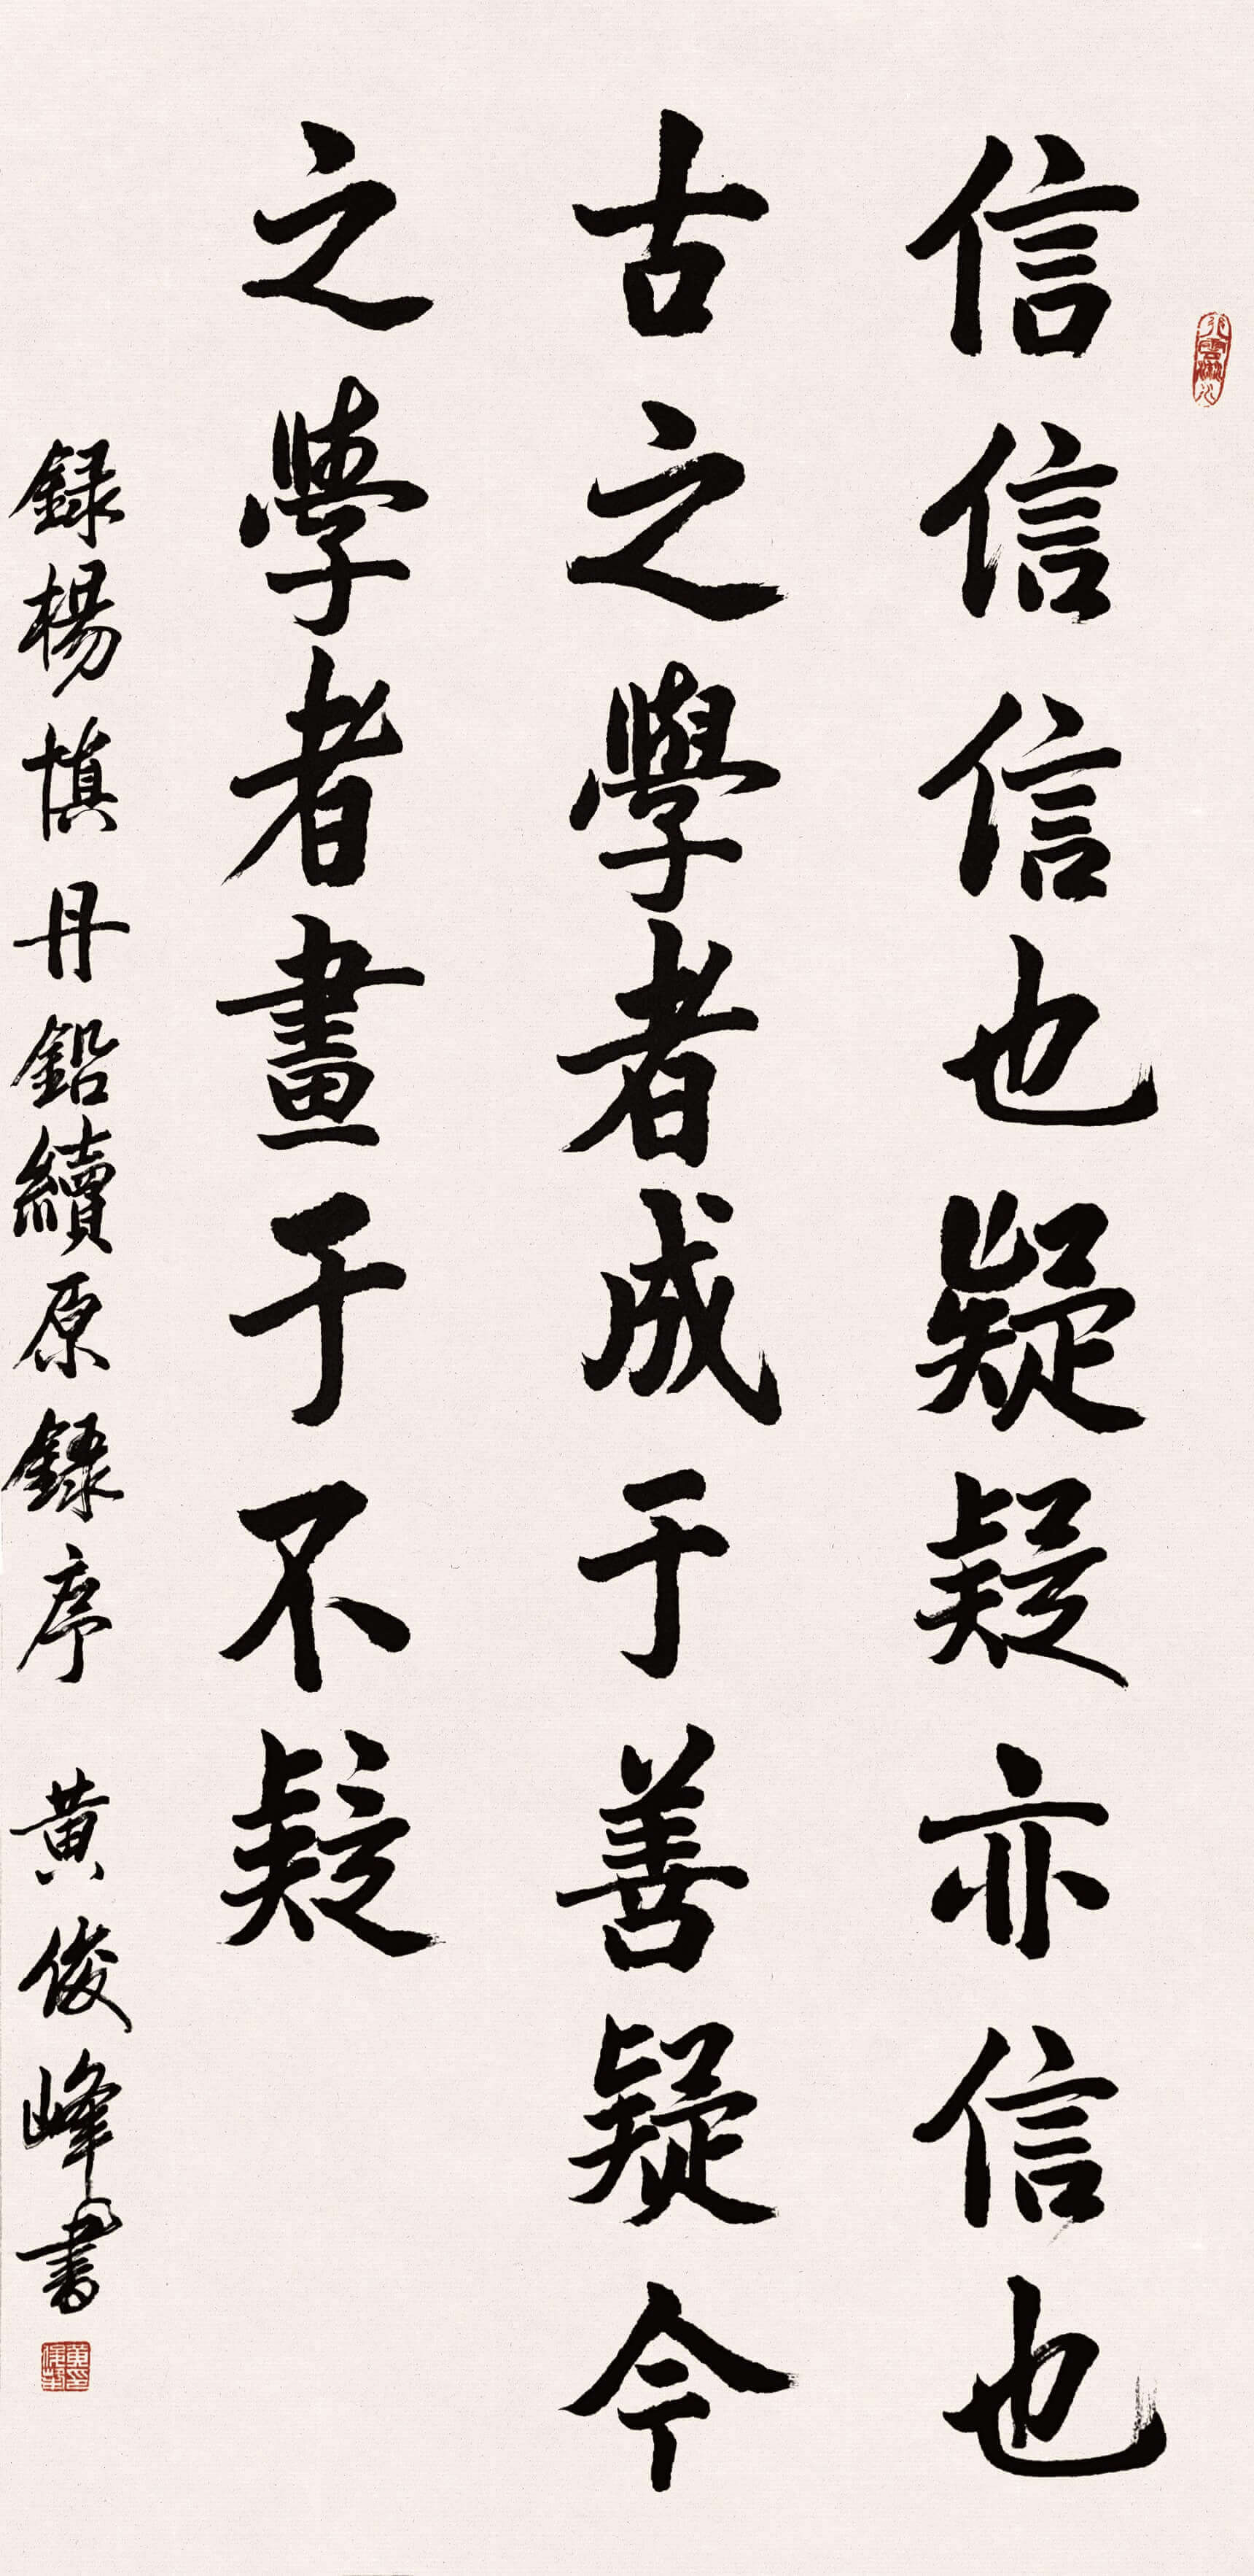 信信信也疑疑亦信也
古之學者成于善疑今
之學者畫于不疑
録楊慎丹鉛續原録序 黄俊峰書